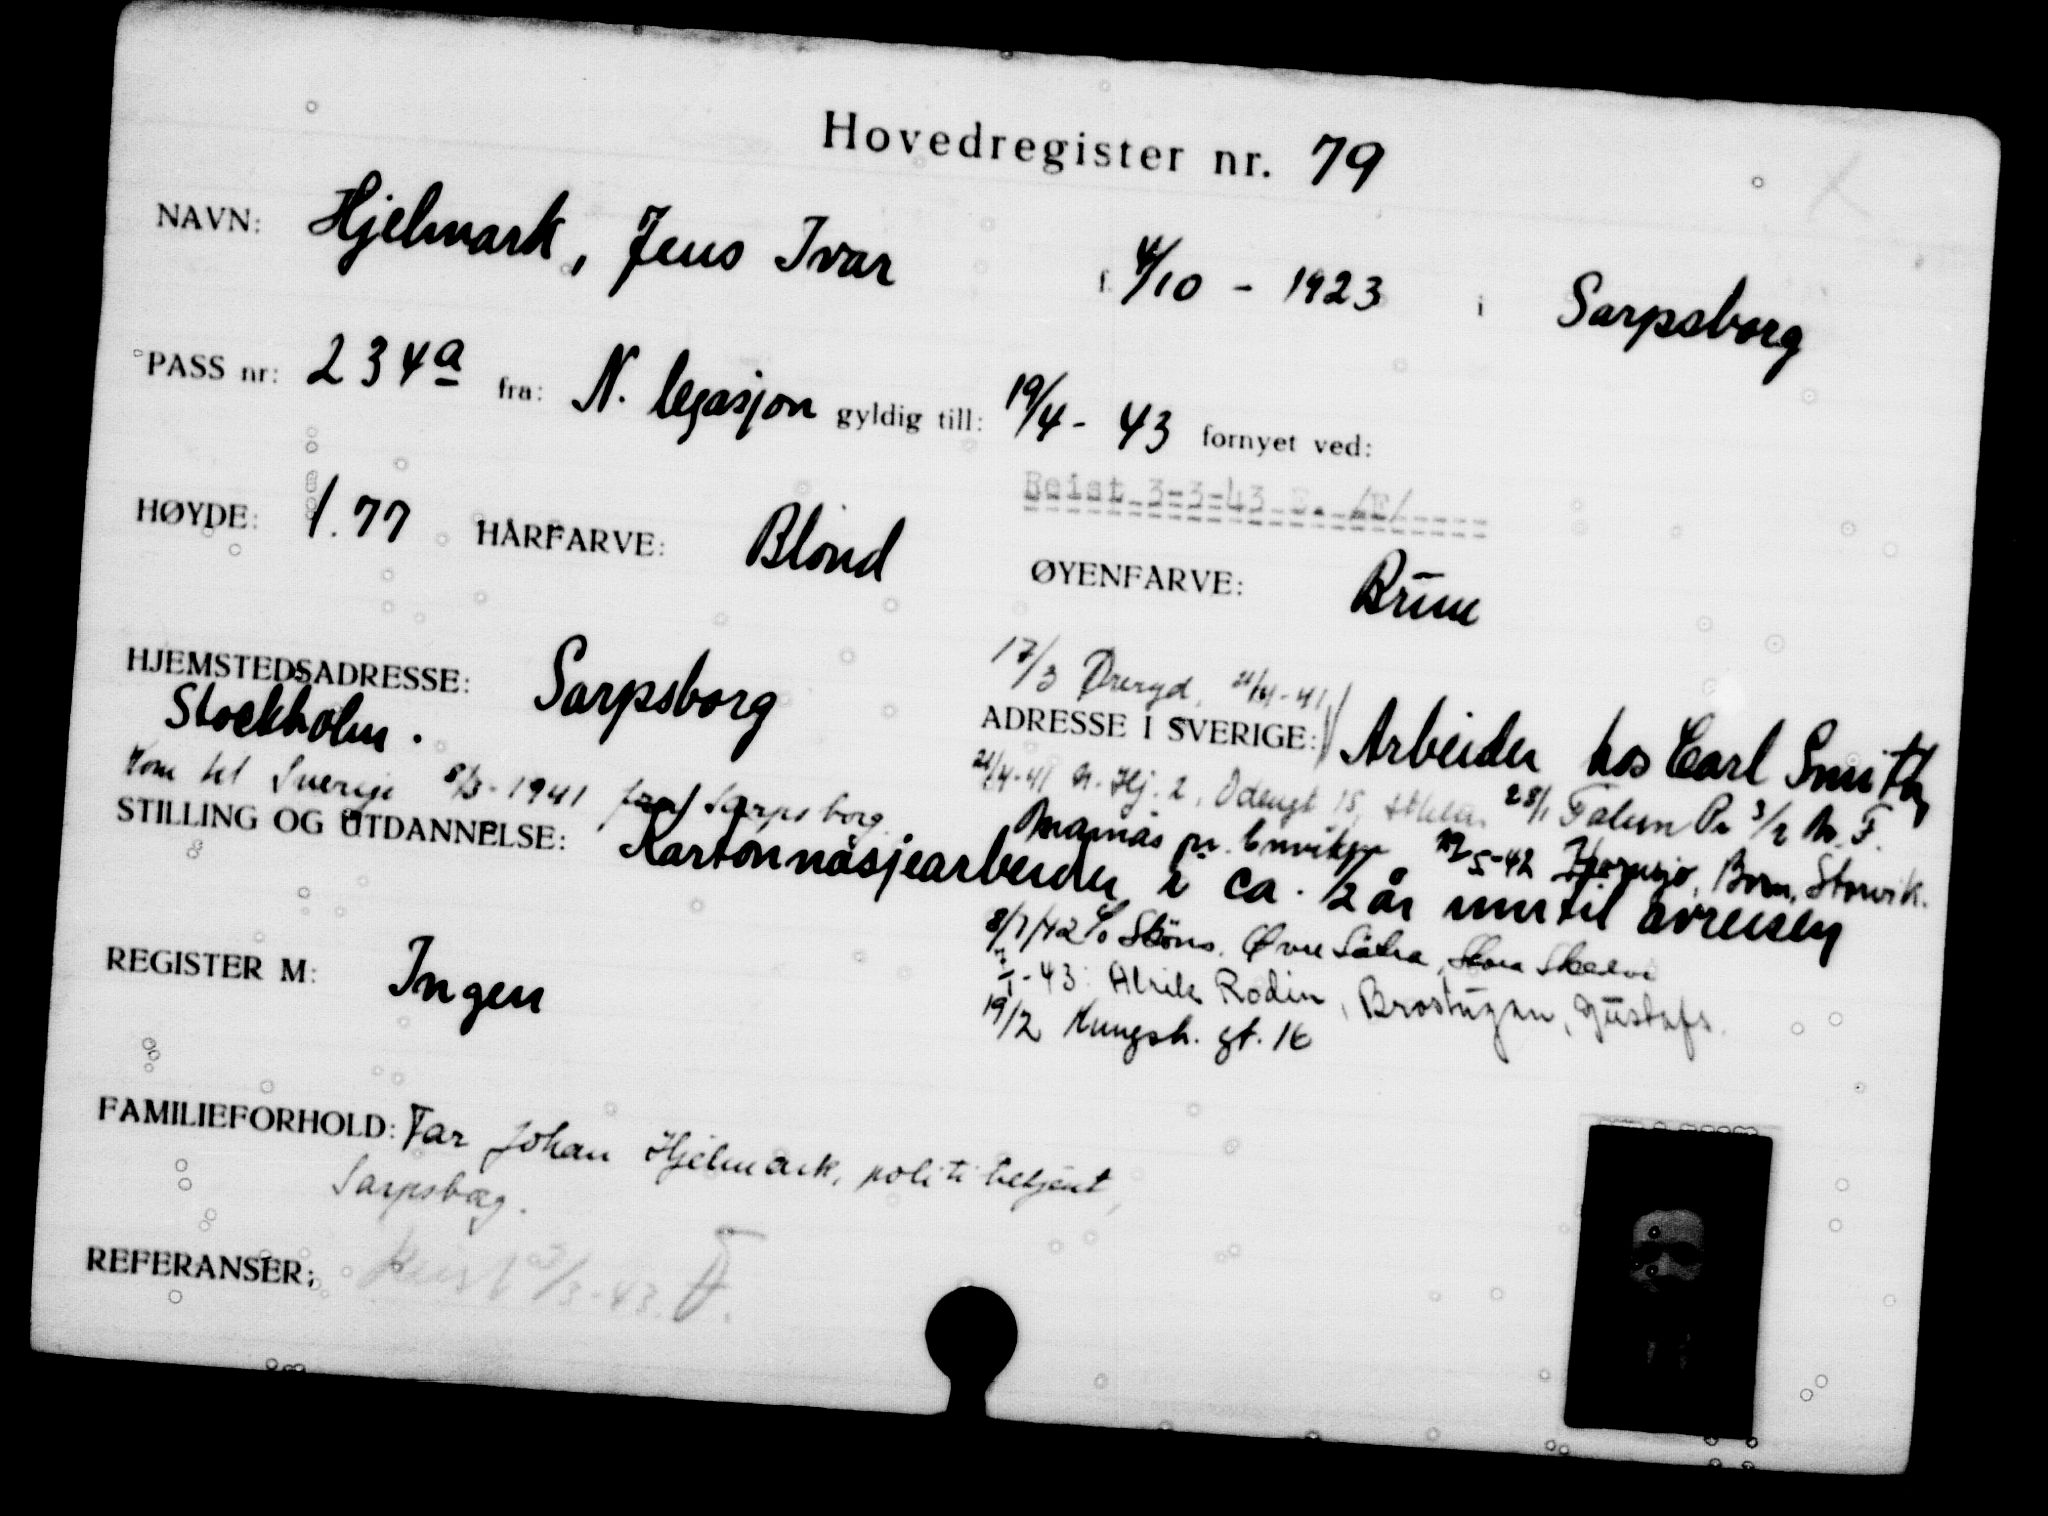 Hovedregister nr. 79
NAVN: Hjelmark, Jens Ivar f. 4/10 - 1923 i Sarpsborg
PASS nr: 234a fra: N. legasjon gyldig till: 19/4 - 43 fornyet ved:
Reist 3-3-43 F. /E/
HØYDE: 1.77 HÅRFARVE: Blond ØYENFARVE: Brune
17/3 Öreryd, 21/4-41
HJEMSTEDSADRESSE: Sarpsborg ADRESSE I SVERIGE: Arbeider hos Carl Smith,
Stockholm.
Kom til Sverige 8/3-1941 fra Sarpsborg. 21/4-41 N. Hj. 2, Odengt 15, Sthlm. 28/1 Falun Pr 3/2 N. F.
pr. Enviken 5-42 Born, Storvik.
STILLING OG UTDANNELSE: Kartonnasjearbeider i ca. 1/2 år inntil avreisen
8/7/42 c/o Sköns, Øvre Sätra, Stora Skedvi
REGISTER M: Ingen
1-43: Alrik Rodin, Brostugan, Gustafs.
19/2 Kungsh. gt. 16
FAMILIEFORHOLD: Far Johan Hjelmark, politibetjent,
Sarpsborg.
REFERANSER: Reist 3/3-43.